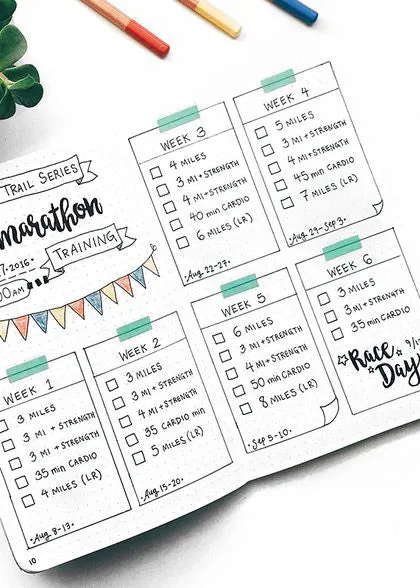 TRAIL SERIES
marathon
TRAINING
7-2016
00AM
WEEK 1
3 MILES
3 MI + STRENGTH
3 MI + STRENGTH
35 min CARDIO
4 MILES (LR)
Aug 8-13
WEEK 2
3 MILES
3 MI + STRENGTH
4 MI + STRENGTH
35 CARDIO min
5 MILES (LR)
Aug 15-20
WEEK 3
4 MILES
3 MI + STRENGTH
4 MI + STRENGTH
40 min CARDIO
6 MILES (LR)
Aug 22-27
WEEK 4
5 MILES
3 MI + STRENGTH
4 MI + STRENGTH
45 min CARDIO
7 MILES (LR)
Aug 29-Sep 3
WEEK 5
6 MILES
3 MI + STRENGTH
4 MI + STRENGTH
50 min CARDIO
8 MILES (LR)
Sep 5-10
WEEK 6
3 MILES
3 MI + STRENGTH
35 min CARDIO
Race
Day
10